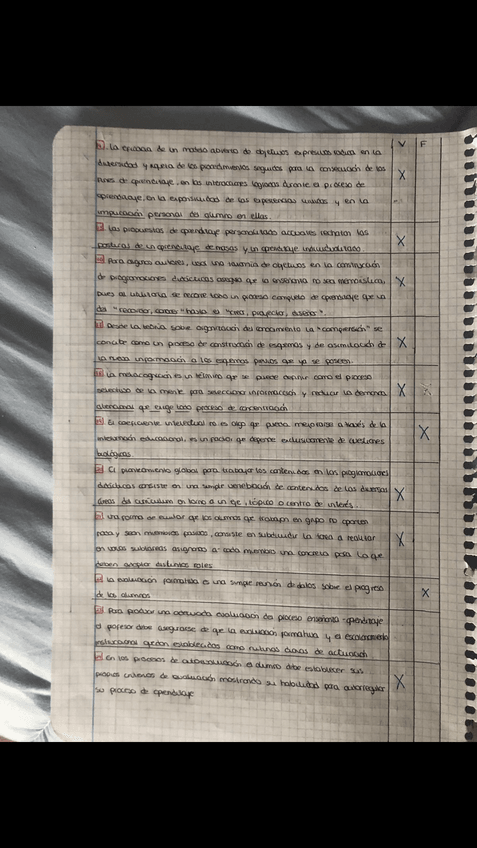 V F
La eficacia de un modelo abierto de objetivos expresivos radica en la
diversidad y riqueza de los procedimientos seguidos para la consecución de los
fines de aprendizaje, en las interacciones logradas durante el proceso de
aprendizaje, en la expansividad de las experiencias vividas y en la
implicación personal del alumno en ellas. X
Las propuestas de aprendizaje personalizado actuales rechazan las
posturas de un aprendizaje de masas y un aprendizaje individualizado X
Para algunos autores, usar una taxonomía de objetivos en la construcción
de programaciones didácticas asegura que la enseñanza no sea memorística, X
pues al utilizarla se recorre todo un proceso completo de aprendizaje que va
del "recordar, conocer" hasta el "crear, proyectar, diseñar".
Desde la teoría sobre organización del conocimiento la "comprensión" se
concibe como un proceso de construcción de esquemas y de asimilación de X
la nueva información a los esquemas previos que ya se poseen.
La metacognición es un término que se puede definir como el proceso
selectivo de la mente para seleccionar información y reducir la demanda X
atencional que exige todo proceso de concentración
El coeficiente intelectual no es algo que pueda mejorarse a través de la
interacción educacional, es un factor que depende exclusivamente de cuestiones X
biológicas.
El planteamiento global para trabajar los contenidos en las programaciones
didácticas consiste en una simple vertebración de contenidos de las diversas
áreas del curriculum en torno a un eje, tópico o centro de interés. X
Una forma de evitar que los alumnos que trabajan en grupo no aporten
nada y sean miembros pasivos, consiste en subdividir la tarea a realizar X
en varias subtareas asignando a cada miembro una concreta para la que
deben adoptar distintos roles
La evaluación formativa es una simple reunión de datos sobre el progreso
de los alumnos X
Para producir una adecuada evaluación del proceso enseñanza-aprendizaje
el profesor debe asegurarse de que la evaluación formativa y el
institucional quedan establecidos como rutinas de actuación
En los procesos de autoevaluación el alumno debe establecer sus
propios criterios de evaluación mostrando su habilidad para autorregular X
su proceso de aprendizaje